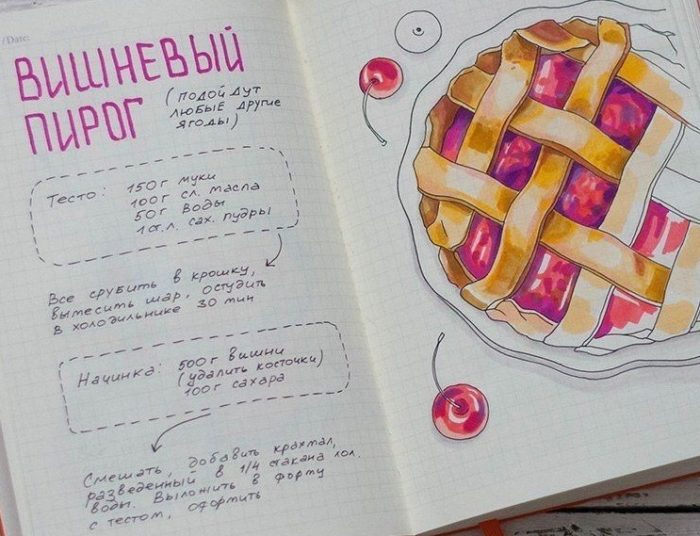 /Date:
ВИШНЕВЫЙ
ПИРОГ
(ПОДОЙДУТ
ЛЮБЫЕ ДРУГИЕ
ЯГОДЫ)
Тесто: 150 г муки
100 г сл. масла
50 г воды
1 ст. л. сах. пудры
Все срубить в крошку,
вымесить шар, остудить
в холодильнике 30 мин
Начинка: 500 г вишни
(удалить косточки)
100 г сахара
Смешать, добавить крахмал,
разведенный в 1/4 стакана хол.
воды. Выложить в форму
с тестом, оформить